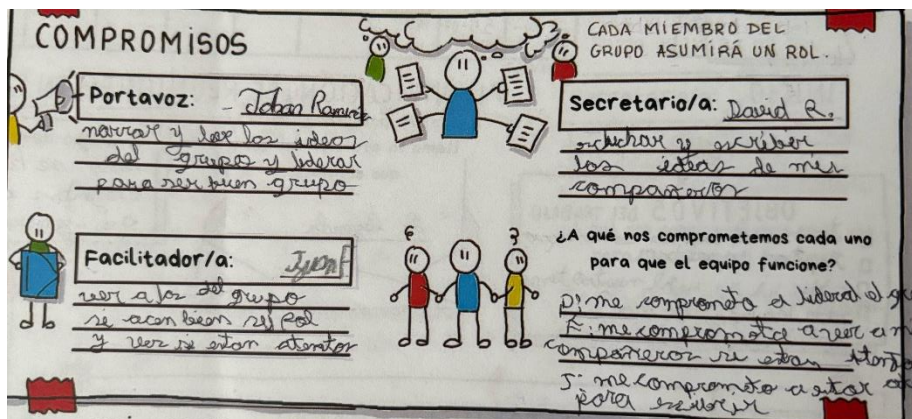 COMPROMISOS
CADA MIEMBRO DEL
GRUPO ASUMIRÁ UN ROL.
Portavoz: - Johan Ramir
narrar y leer las ideas
del grupo y liderar
para ser buen grupo
Secretario/a: David R.
eschuchar y escribir
las ideas de mis
compañeros
Facilitador/a: Juan F
ver a los del grupo
si acen bien su rol
y ver si estan atentos
¿A qué nos comprometemos cada uno
para que el equipo funcione?
P: me comprometo a lideral el
F: me comprometo a veer a
compañeros si estan atento
S: me comprometo a estar
para escurir